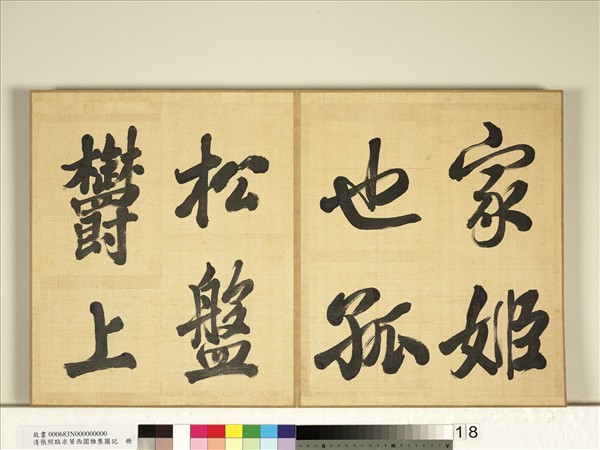 家姬
也孤
松盤
欝上
故書 000683N000000000
清張照臨米芾西園雅集圖記 冊
18